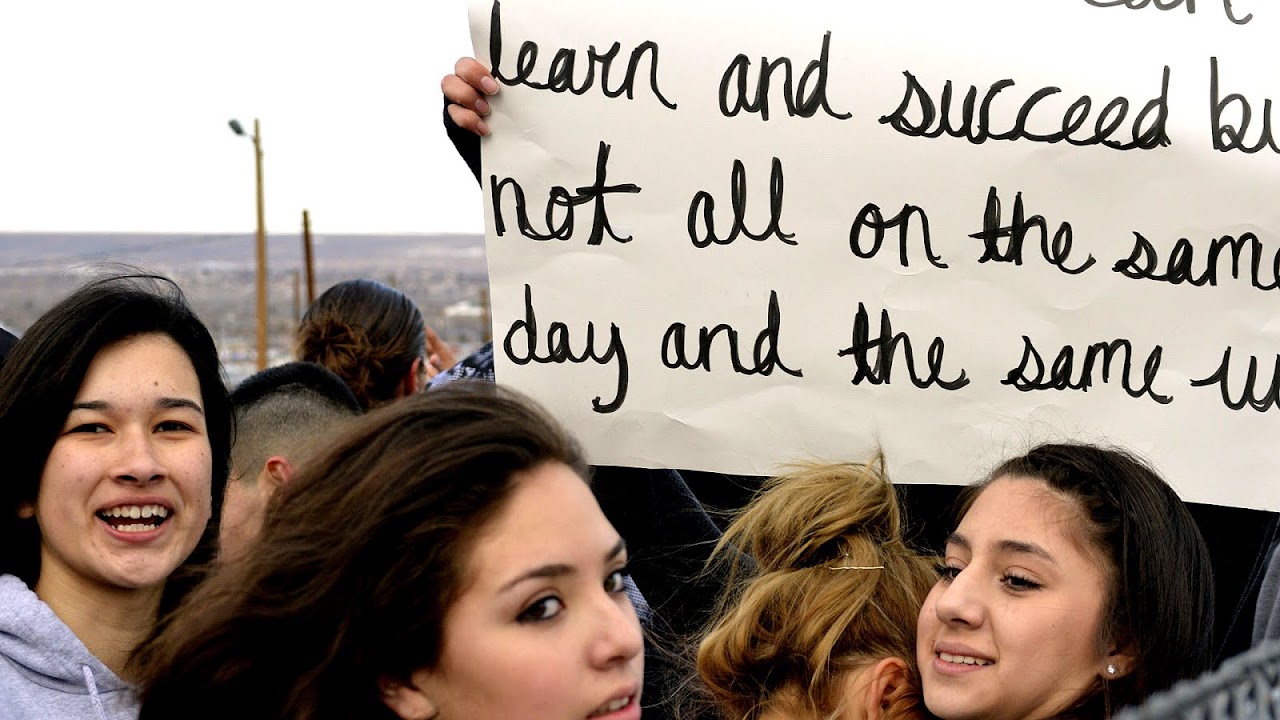 learn and succeed
not all on the same
day and the same